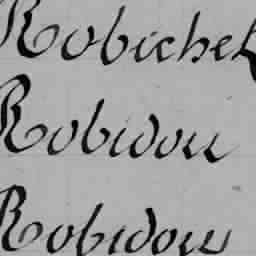 Robichel
Robidou
Robidou